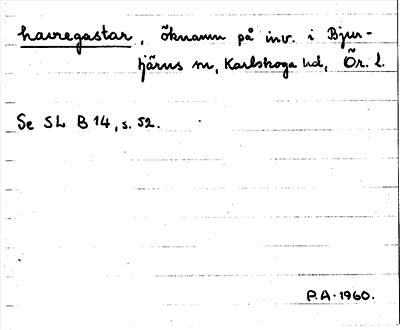 havregastar, öknamn på inv. i Bjur-
tjärns sn, Karlskoga hd, Ör. l.
Se SL B 14, s. 52.
P.A. 1960.